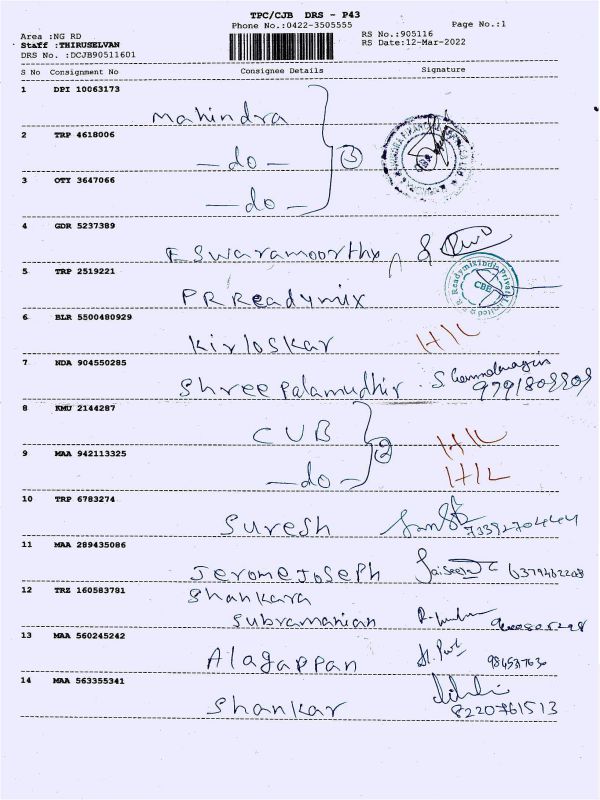 TPC/CJB DRS - P43
Phone No.:0422-3505555
Page No.:1
Area :NG RD
RS No.:905116
Staff :THIRUSELVAN
RS Date:12-Mar-2022
DRS No. :DCJB90511601
S No Consignment No Consignee Details Signature
1 DPI 10063173
Mahindra
2 TRP 4618006
-do- 3
3 OTY 3647066
-do-
4 GDR 5237389
Eswaramoorthy
5 TRP 2519221
PR Readymix
CBE
6 BLR 5500480929
Kirloskar H/L
7 NDA 904550285
Shree Palamudhir
8 KMU 2144287
CUB 2 H/L
9 MAA 942113325
-do- H/L
10 TRP 6783274
Suresh
11 MAA 289435086
Jerome Joseph
12 TRZ 160583781
Shankara
Subramanian
13 MAA 560245242
Alagappan
14 MAA 563355341
Shankar 8220761513